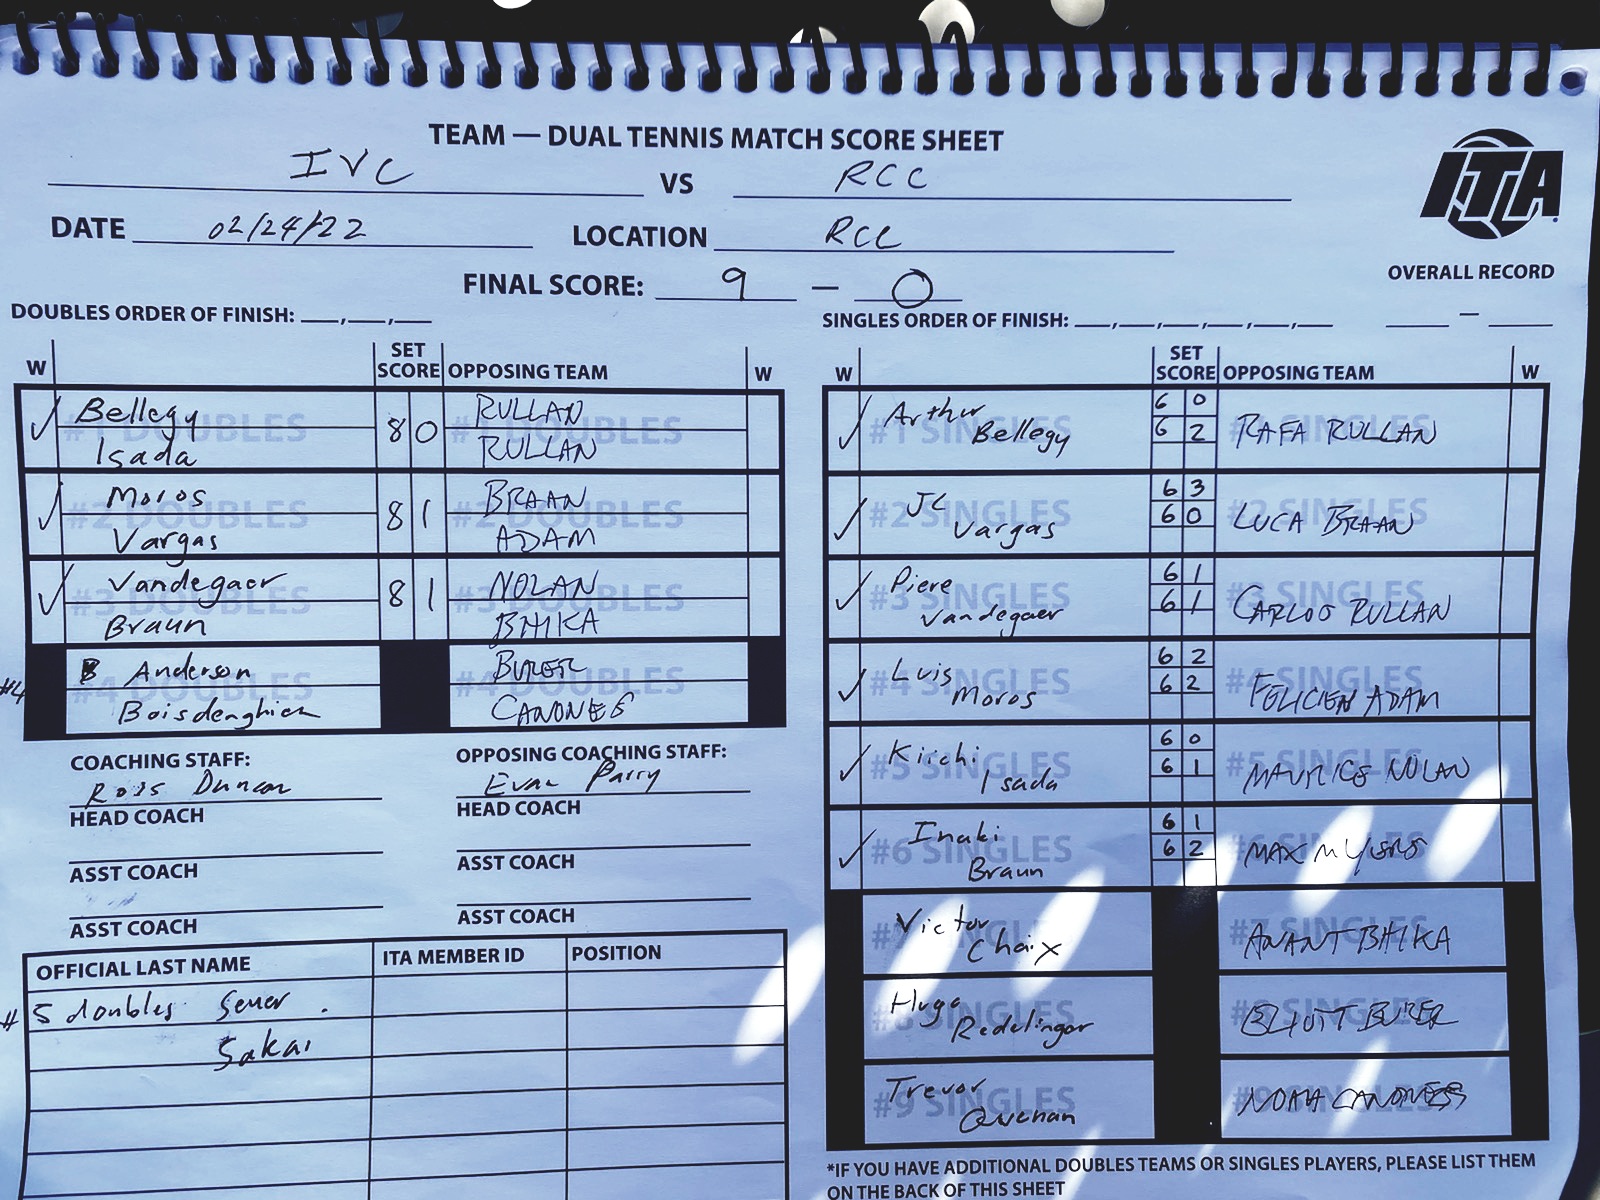 TEAM — DUAL TENNIS MATCH SCORE SHEET
IVC VS RCC
ITA
DATE 02/24/22 LOCATION RCC
OVERALL RECORD
FINAL SCORE: 9 — 0
DOUBLES ORDER OF FINISH: ___,___,___
SINGLES ORDER OF FINISH: ___,___,___,___,___,___ ___ — ___
W SET SCORE OPPOSING TEAM W
#1 DOUBLES
✓ Bellegy 8 0 RULLAN
Isada RULLAN
#2 DOUBLES
✓ Moros 8 1 BRAAN
Vargas ADAM
#3 DOUBLES
✓ Vandegaer 8 1 NOLAN
Braun BHIKA
#4 DOUBLES
#4 Anderson BURER
Boisdenghien CANONEE
COACHING STAFF:
Ross Duncan
HEAD COACH
ASST COACH
ASST COACH
OPPOSING COACHING STAFF:
Evan Parry
HEAD COACH
ASST COACH
ASST COACH
OFFICIAL LAST NAME ITA MEMBER ID POSITION
#5 doubles Sener
Sakai
W SET SCORE OPPOSING TEAM W
#1 SINGLES
✓ Arthur Bellegy 6 0 RAFA RULLAN
6 2
#2 SINGLES
✓ JC Vargas 6 3 LUCA BRAAN
6 0
#3 SINGLES
✓ Piere Vandegaer 6 1 CARLOS RULLAN
6 1
#4 SINGLES
✓ Luis Moros 6 2 FELICIEN ADAM
6 2
#5 SINGLES
✓ Kiichi Isada 6 0 MAURICE NOLAN
6 1
#6 SINGLES
✓ Inaki Braun 6 1 MAX MYERS
6 2
#7 SINGLES
Victor Chaix ANANT BHIKA
#8 SINGLES
Hugo Redelinger ELIOTT BURER
#9 SINGLES
Trevor Quenan NOAH
*IF YOU HAVE ADDITIONAL DOUBLES TEAMS OR SINGLES PLAYERS, PLEASE LIST THEM
ON THE BACK OF THIS SHEET